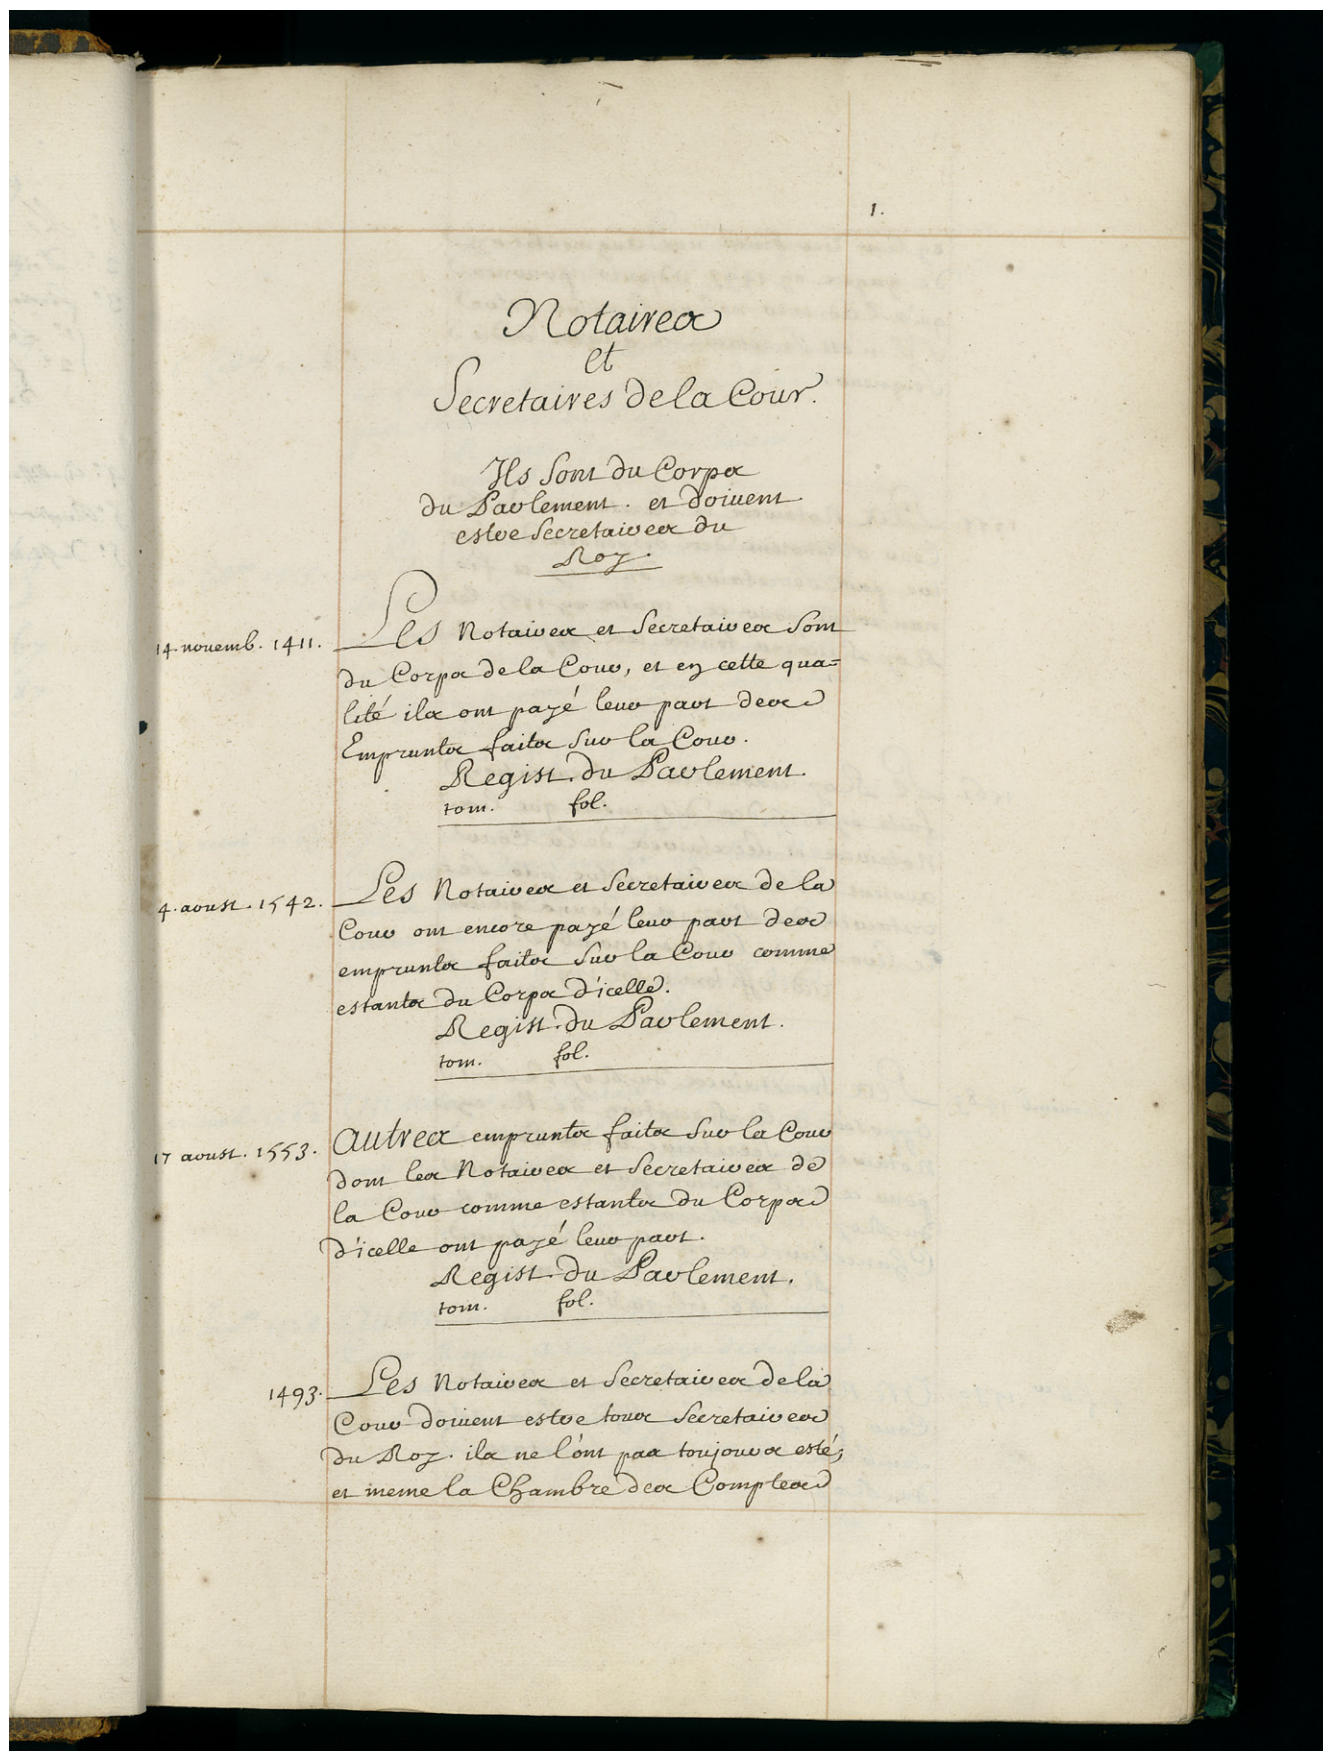 1.
Notaires
et
Secretaires de la Cour.
Ils sont du Corps
du Parlement. et doivent
estre Secretaires du
Roy.
14. novemb. 1411. Les Notaires et Secretaires sont
du Corps de la Cour, et en cette qua=
lité ils ont payé leur part des
Emprunts faits sur la Cour.
Regist. du Parlement.
tom. fol.
4. aoust. 1542. Les Notaires et Secretaires de la
Cour ont encore payé leur part des
emprunts faits sur la Cour comme
estants du Corps d'icelle.
Regist. du Parlement.
tom. fol.
17 aoust. 1553. Autres emprunts faits sur la Cour
dont les Notaires et Secretaires de
la Cour comme estants du Corps
d'icelle ont payé leur part.
Regist. du Parlement.
tom. fol.
1493. Les Notaires et Secretaires de la
Cour doivent estre tous Secretaires
du Roy. ils ne l'ont pas toujours esté,
et meme la Chambre des Comptes